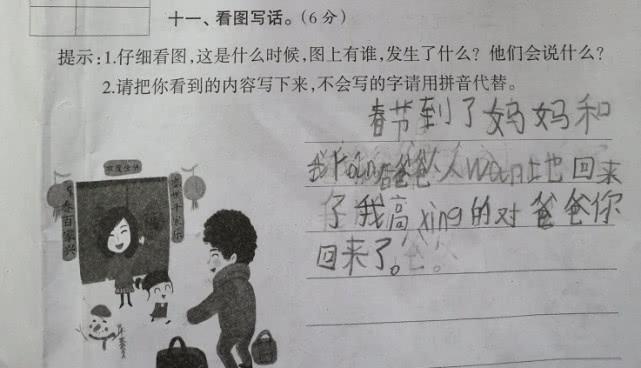 十一、看图写话。(6分)
提示:1.仔细看图,这是什么时候,图上有谁,发生了什么?他们会说什么?
2.请把你看到的内容写下来,不会写的字请用拼音代替。
春节到了妈妈和
我 爸爸 人 地回来
了我高xing的对爸爸你
回来了。